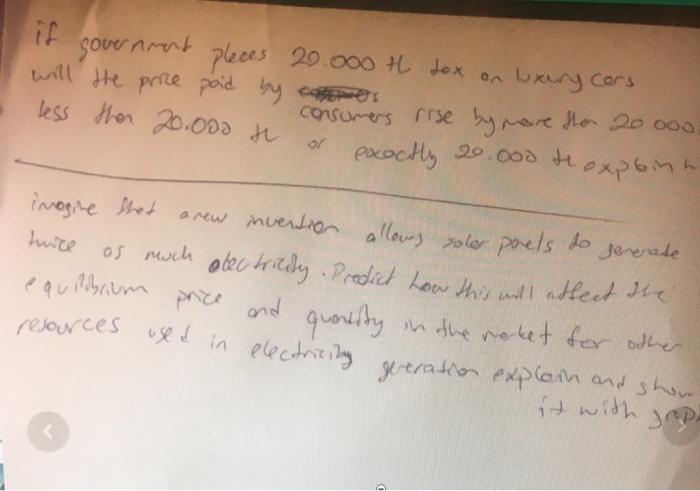 if government places 20.000 tl tax on luxury cars
will the price paid by consumers rise by more then 20 000
less then 20.000 tl or exactly 20.000 tl explain
imagine that a new invention allows solar panels to generate
twice as much electricity. Predict how this will affect the
equilibrium price and quantity in the market for other
resources used in electricity generation explain and show
it with